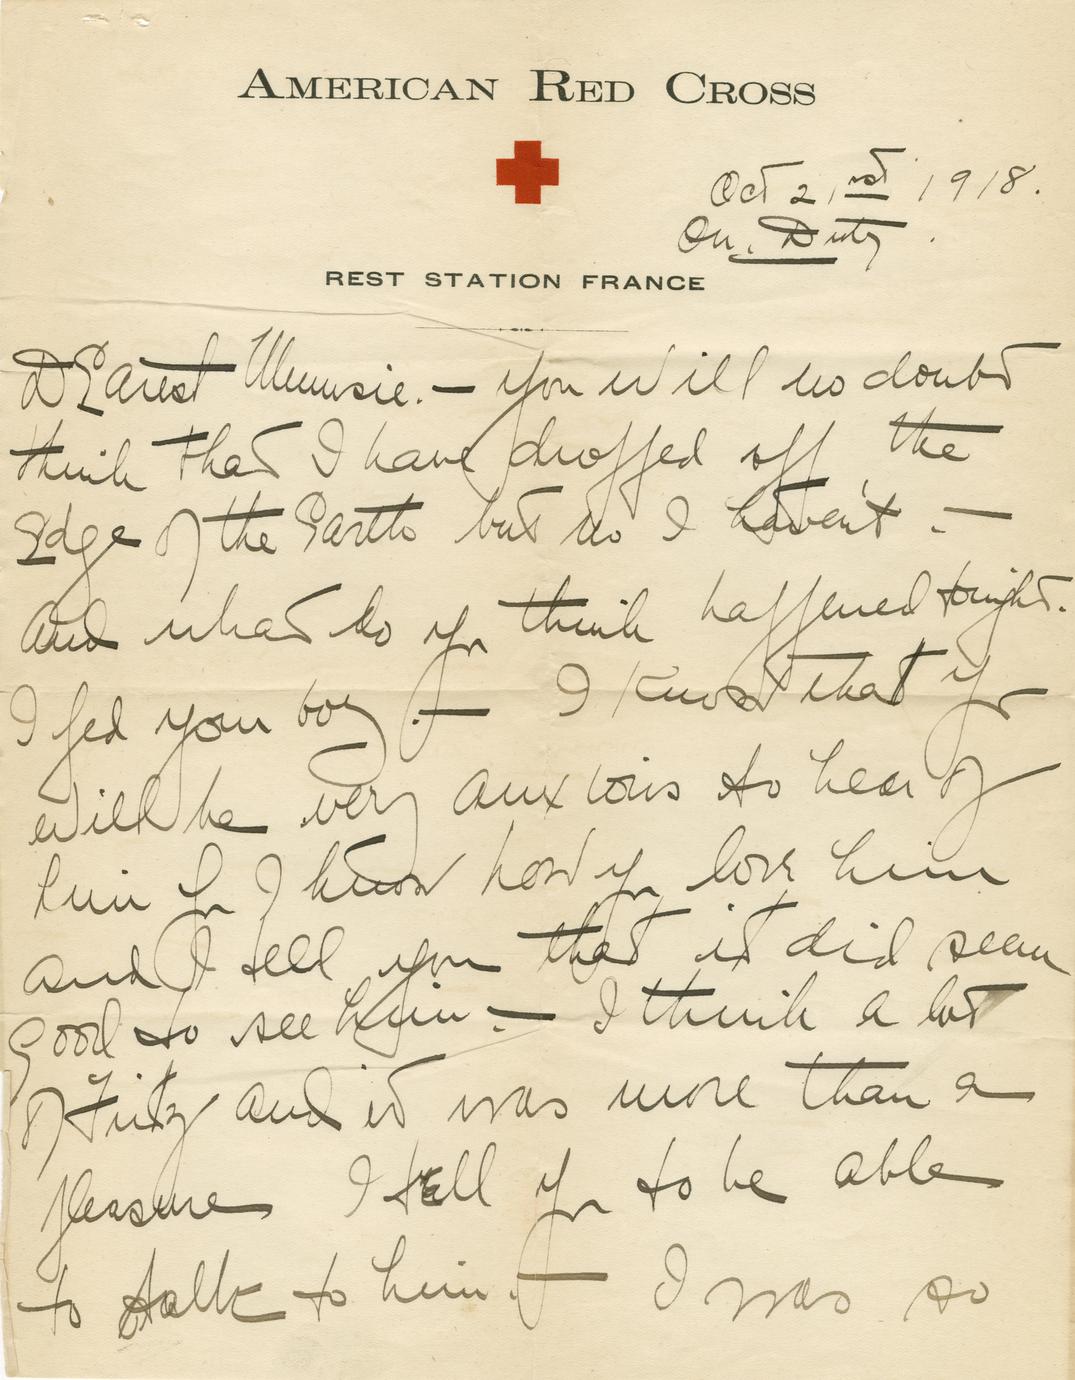 AMERICAN RED CROSS
Oct 21st 1918.
On. Duty.
REST STATION FRANCE
DEarest Mumsie. — you will no doubt
think that I have dropped off the
Edge of the Earth but no I haven't. —
And what do yr think happened tonight.
I fed your boy. — I know that yr
will be very anxious to hear of
him for I know how yr love him
and I tell you that it did seem
good to see him. — I think a lot
of Fritz and it was more than a
pleasure I tell yr to be able
to talk to him. — I was so